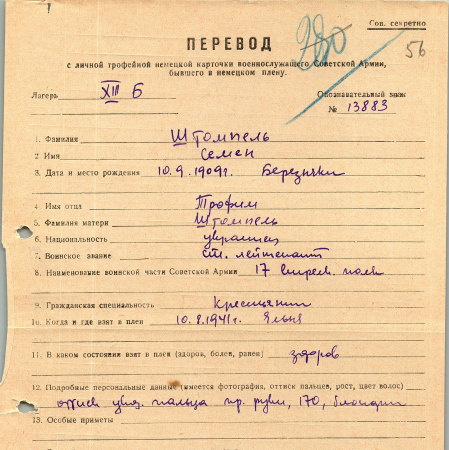 Сов. секретно
280
56
ПЕРЕВОД
с личной трофейной немецкой карточки военнослужащего Советской Армии,
бывшего в немецком плену.
Лагерь XIII Б
Опознавательный знак
№ 13883
1. Фамилия Штомпель
2 Имя Семен
3. Дата и место рождения 10.9.1909г. Березнячки
4. Имя отца Трофим
5. Фамилия матери Штомпель
6. Национальность украинец
7. Воинское звание ст. лейтенант
8. Наименование воинской части Советской Армии 17 стрел. полк
9. Гражданская специальность Крестьянин
10. Когда и где взят в плен 10.8.1941г. Ельня
11. В каком состоянии взят в плен (здоров, болен, ранен) здоров
12. Подробные персональные данные (имеется фотография, оттиск пальцев, рост, цвет волос)
оттиск указ. пальца пр. руки, 170, блондин
13. Особые приметы